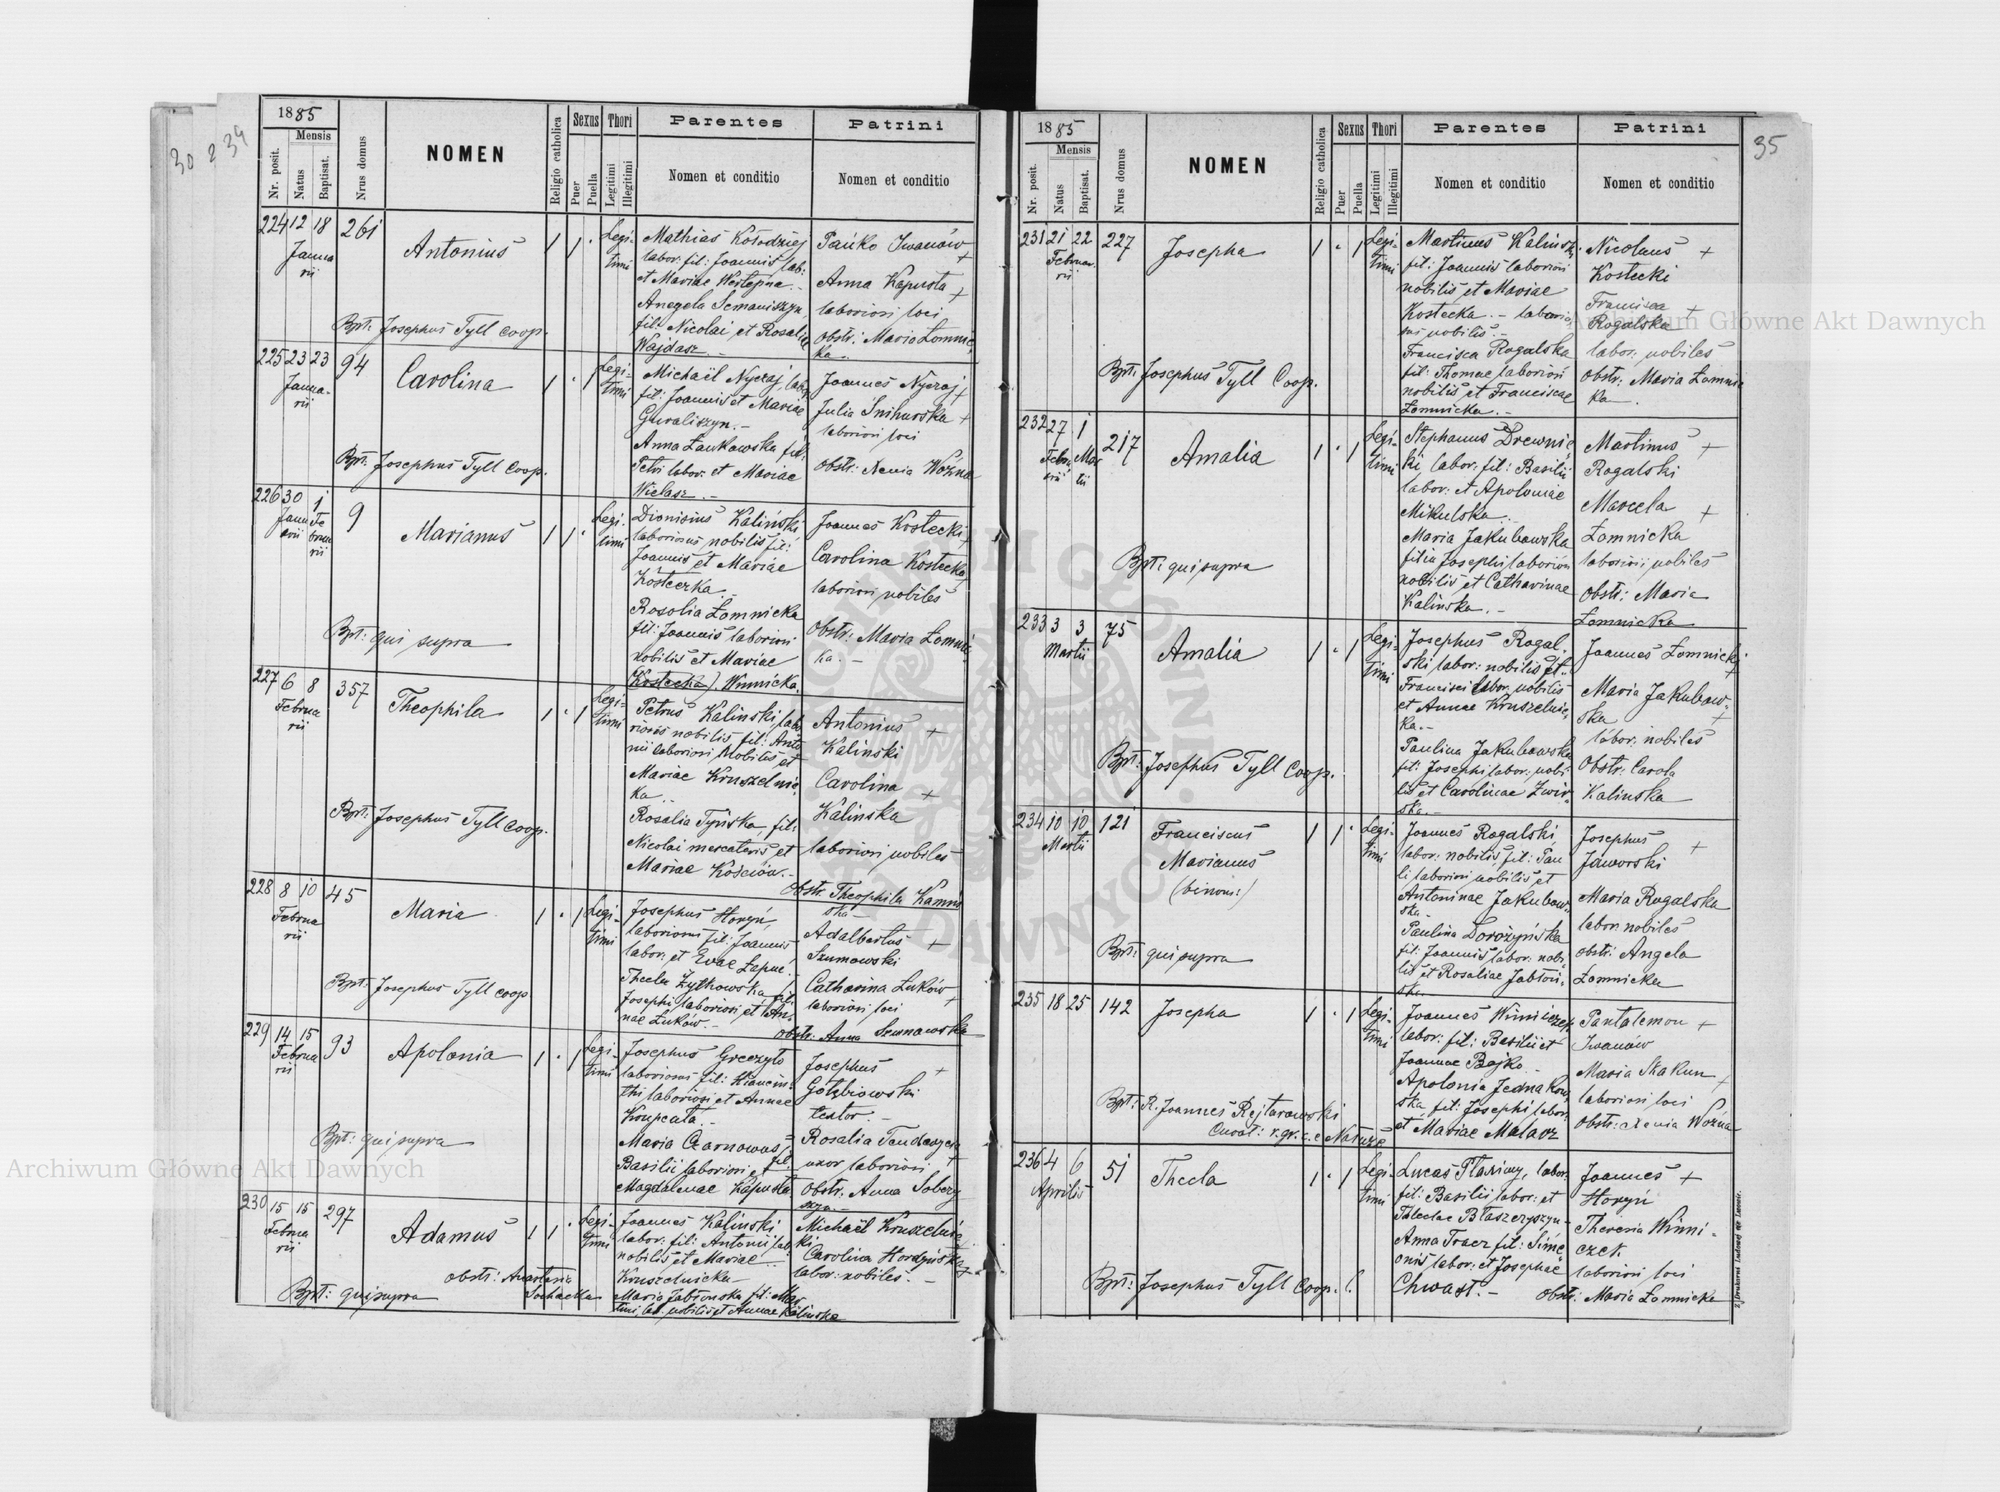 30 2 34
1885
Mensis
Nr. posit.
Natus
Baptisat.
Nrus domus
NOMEN
Religio catholica
Sexus
Puer
Puella
Thori
Legitimi
Illegitimi
Parentes
Nomen et conditio
Patrini
Nomen et conditio
224 12 18 261
Janua
rii
Antonius
1 1 .
Legi-
timi
Mathias Kołodziej
labor. fil: Joannis lab.
et Mariae Westepna.-
Angela Semaniszyn,
fil: Nicolai et Rosaliae
Wajdasz.-
Pańko Iwanów
+
Anna Kapusta +
laboriosi loci
Obstr: Maria Łomnic
ka.-
Bpt: Josephus Tyll Coop.
225 23 23 94
Janua-
rii
Carolina
1 . 1
Legi-
timi
Michaël Nyczaj, labor
fil: Joannis et Mariae
Guraliszyn.-
Anna Łankowska fil:
Petri labor. et Mariae
Wielasz.-
Joannes Nyczaj +
Julia Snihurska +
laboriosi loci
Obstr: Xenia Woźna
Bpt: Josephus Tyll Coop.
226 30 1 9
Janu
arii
Fe
brua
rii
Marianus
1 1 .
Legi-
timi
Dionisius Kaliński,
laboriosus nobilis fil:
Joannis et Mariae
Kosteczka.-
Rosolia Łomnicka
fil: Joannis laboriosi
nobilis et Mariae
(Kostecka) Winnicka.
Joannes Kostecki +
Carolina Kostecka
laboriosi nobiles
Obstr: Maria Łomnic
ka.-
Bpt: qui supra
227 6 8 357
Februa
rii
Theophila
1 . 1
Legi-
timi
Petrus Kalinski labo
riosus nobilis fil: Anto
nii laboriosi nobilis et
Mariae Kruszelnic
ka.-
Rosalia Tyńska, fil:
Nicolai mercatoris et
Mariae Kościów.-
Antonius +
Kaliński
Carolina +
Kalinska
laboriosi nobiles
Obstr. Theophila Kamin
ska-
Bpt: Josephus Tyll Coop.
228 8 10 45
Februa
rii
Maria
1 . 1
Legi-
timi
Josephus Horyń,
laboriosus fil: Joannis
labor. et Evae Łapuć.-
Thecla Zytkowska fil.
Josephi laboriosi et An-
nae Łuków.-
Adalbertus +
Szumowski
Catharina Łuków +
laboriosi loci
Obstr: Anna Szumowska
Bpt: Josephus Tyll Coop
229 14 15 93
Februa
rii
Apolonia
1 . 1
Legi-
timi
Josephus Greczyło
laboriosus fil: Hiacin-
thi laboriosi et Annae
Maria Czarnowus,
Basilii laboriosi, fil.
Magdalenae Kapusta.
Josephus +
Gołębiowski
textor -
Rosalia
uxor laboriosi
Obstr. Anna Sobczy
Bpt: qui supra
230 15 15 297
Februa
rii
Adamus
1 1 .
Legi-
timi
Joannes Kalinski
labor: fil: Antonii lab
nobilis et Mariae
Kruszelnicka-
Maria Jabłonska fil: Mar
tini, lab. nobilis et Annae Kalinska
Michaël Kruszelnic
ki
Carolina Hordyńska
labor: nobiles.-
obstr: Anastasia
Bpt: qui supra
35
1885
Mensis
Nr. posit.
Natus
Baptisat.
Nrus domus
NOMEN
Religio catholica
Sexus
Puer
Puella
Thori
Legitimi
Illegitimi
Parentes
Nomen et conditio
Patrini
Nomen et conditio
231 21 22 227
Februa-
rii
Josepha
1 . 1
Legi-
timi
Martinus Kalinski
fil: Joannis laboriosi
nobilis et Mariae
Kostecka.- laborio
sus nobilis.-
Francisca Rogalska
fil: Thomae laboriosi
nobilis et Franciscae
Łomnicka.-
Nicolaus +
Kostecki
Francisca +
Rogalska
labor: nobiles
Obstr: Maria Łomnic
ka
Bpt: Josephus Tyll Coop.
232 27 1 217
Febru
arii
Mar
tii
Amalia
1 . 1
Legi-
timi
Stephanus Drewnic
ki, labor: fil: Basilii
labor: et Apoloniae
Mikulska.-
Maria Jakubowska
filia Josephi laboriosi
nobilis et Catharinae
Kalinska.-
Martinus +
Rogalski
Marcela +
Łomnicka
laboriosi nobiles
Obstr: Maria
Łomnicka
Bpt: qui supra
233 3 3 75
Martii
Amalia
1 . 1
Legi-
timi
Josephus Rogal-
ski labor: nobilis fil.
Francisci labor. nobilis
et Annae Kruszelnic
ka.-
Paulina Jakubowska
fil: Josephi labor: nobi-
lis et Carolinae Zwir-
ska.-
Joannes Łomnicki
+
Maria Jakubow-
ska +
labor: nobiles
Obstr: Carola
Kalinska
Bpt: Josephus Tyll Coop.
234 10 10 121
Martii
Franciscus
Marianus
(binom:)
1 1 .
Legi-
timi
Joannes Rogalski,
labor: nobilis fil: Pau
li laboriosi nobilis et
Antoninae Jakubow-
ska-
Paulina Dorożyńska
fil: Joannis labor: nobi-
lis et Rosaliae Jabłoń-
ska.-
Josephus +
Jaworski
Maria Rogalska
labor: nobiles
obstr: Angela
Łomnicka
Bpt: qui supra
235 18 25 142
Josepha
1 . 1
Legi-
timi
Joannes Winniczek
labor: fil: Basilii et
Joannae Bojko.-
Apolonia Jednakow
ska, fil: Josephi labor:
et Mariae Malarz
Pantalemon +
Iwanów
Maria Skakun +
laboriosi loci
Obstr: Xenia Woźna
Bpt: R. Joannes Rejtarowski
Curat: r. gr. c. e
236 4 6 51
Aprilis
Thecla
1 . 1
Legi-
timi
Lucas Ptasiwy, labor.
fil: Basilii labor: et
Theclae Błaszczyszyn-
Anna Tracz fil: Sime
onis labor: et Josephae
Chwast.-
Joannes +
Horyń
Theresia Winni-
czek
laboriosi loci
Obstr: Maria Łomnicka
Bpt: Josephus Tyll Coop.
Z Drukarni Ludowej we Lwowie.
Archiwum Główne Akt Dawnych
Archiwum Główne Akt Dawnych
ARCHIWUM GŁÓWNE AKT DAWNYCH